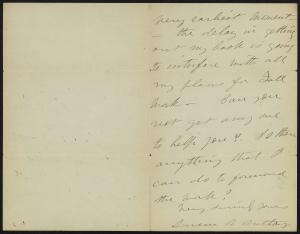 very earliest moment
— the delay in getting
out my book is going
to interfere with all
my plans for Fall
work — Can you
not get any one
to help you? Is there
anything that I
can do to forward
the work?
Very sincerely yours
Susan B Anthony